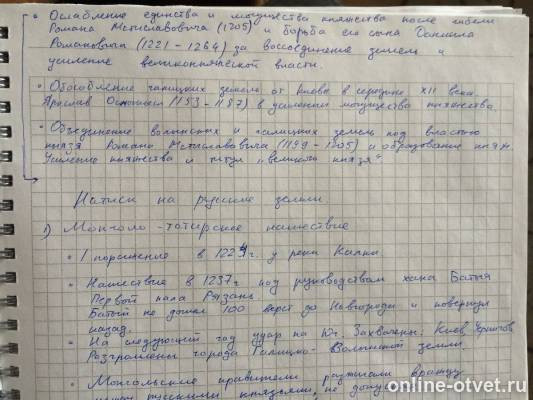 • Ослабление единства и могущества княжества после гибели
Романа Мстиславовича (1205) и борьба его сына Даниила
Романовича (1221 - 1264) за воссоединение земель и
усиление великокняжеской власти.
• Обособление галицких земель от Киева в середине XII века.
Ярослав Осмомысл (1153 - 1187) в усилении могущества княжества.
• Объединение волынских и галицких земель под властью
князя Романа Мстиславовича (1199 - 1205) и образование княж
Усиление княжества и титул „великого князя"
Натиск на русские земли.
1) Монголо-татарское нашествие
• 1 поражение в 1224г. у реки Калки.
• Нашествие в 1237г. под руководством хана Батыя
Первой пала Рязань.
Батый не дошел 100 верст до Новгорода и повернул
назад.
• На следующий год удар на Юг. Захвачены: Киев, Чернигов
Разгромлены города Галицко-Волынской земли.
• Монгольские правители разжигали вражду
между русскими князьями, не
online-otvet.ru